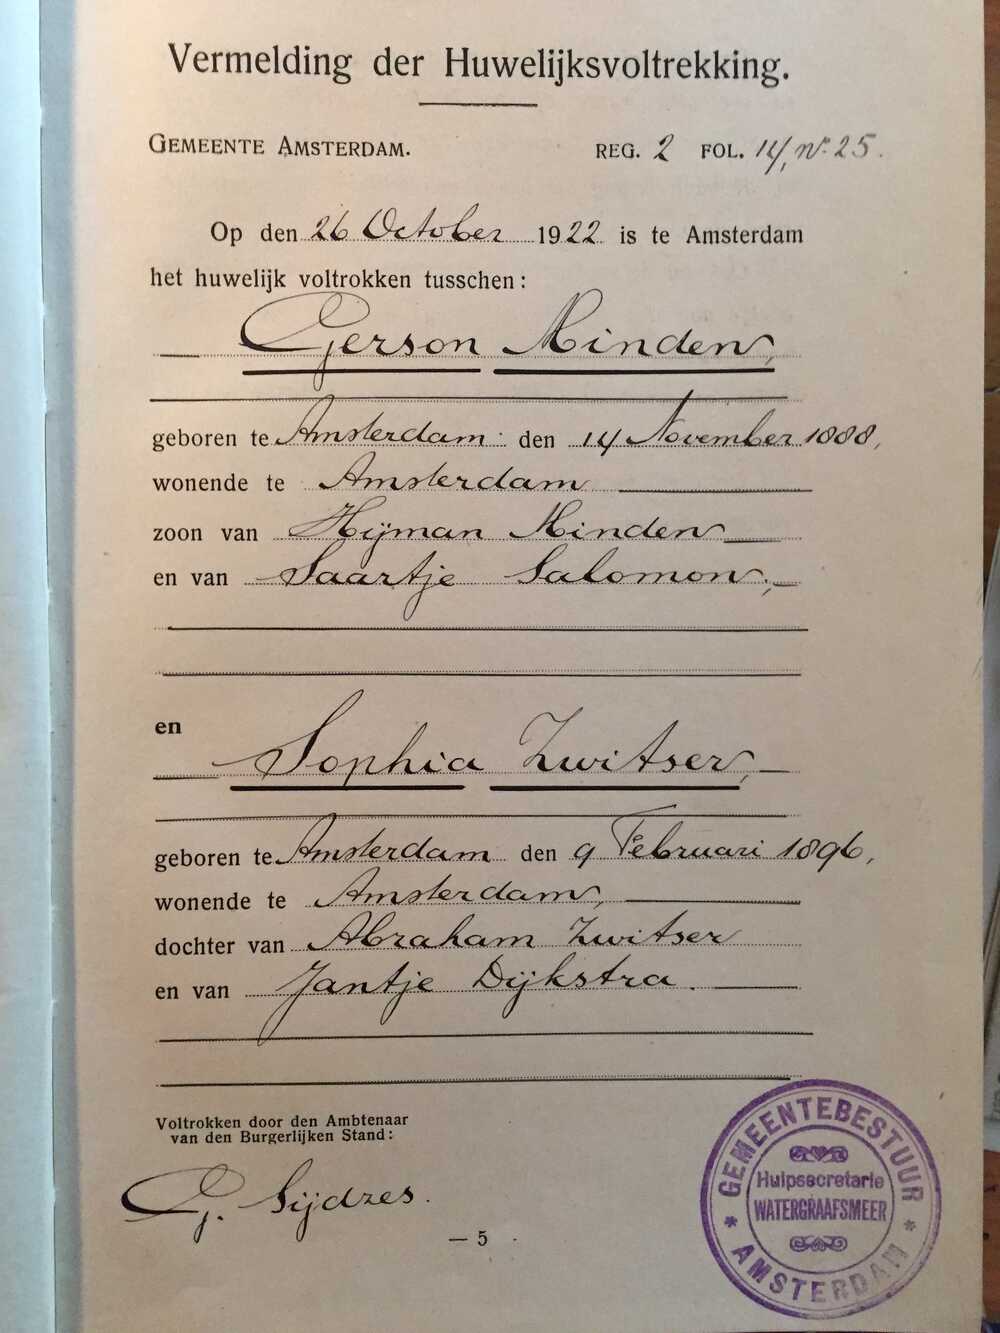 Vermelding der Huwelijksvoltrekking.
GEMEENTE AMSTERDAM. REG. 2 FOL. 14, No 25.
Op den 26 October 1922 is te Amsterdam
het huwelijk voltrokken tusschen:
Gerson Minden,
geboren te Amsterdam den 14 November 1888,
wonende te Amsterdam
zoon van Hijman Minden
en van Saartje Salomon,
en
Sophia Zwitser,
geboren te Amsterdam den 9 Februari 1896,
wonende te Amsterdam,
dochter van Abraham Zwitser
en van Jantje Dijkstra.
Voltrokken door den Ambtenaar
van den Burgerlijken Stand:
G. Sijdzes.
— 5
GEMEENTEBESTUUR
Hulpsecretarie
WATERGRAAFSMEER
* AMSTERDAM *